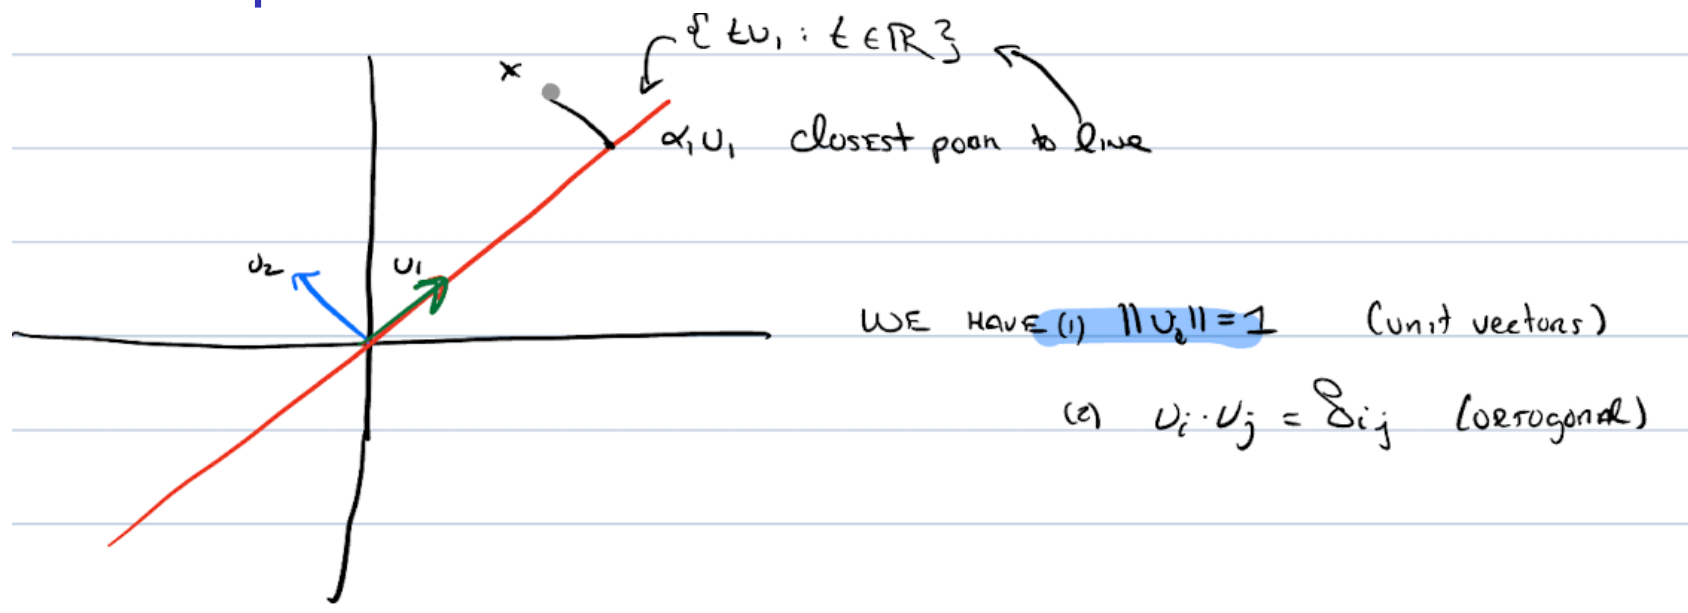 { tu₁ : t ∈ ℝ }
x
α₁u₁ closest poan to line
u₂
u₁
WE HAVE (1) ||u_i|| = 1 (unit vectors)
(2) u_i · u_j = δ_ij (ortogonal)